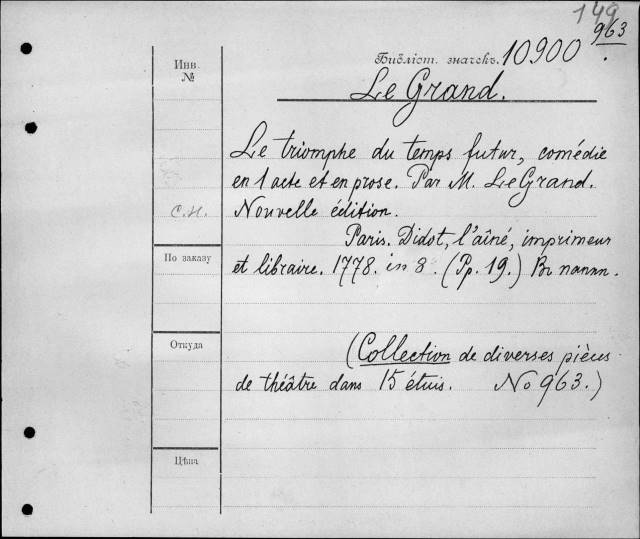 149
Библіот. значекъ. 10900 963.
Инв.
№
Le Grand.
Le triomphe du temps futur, comédie
en 1 acte et en prose. Par M. Le Grand.
С.И. Nouvelle édition.
Paris. Didot, l'aîné, imprimeur
По заказу
et libraire. 1778. in 8. (Pp. 19.) Въ папкѣ.
Откуда
(Collection de diverses pièces
de théâtre dans 15 étuis. No 963.)
Цѣна